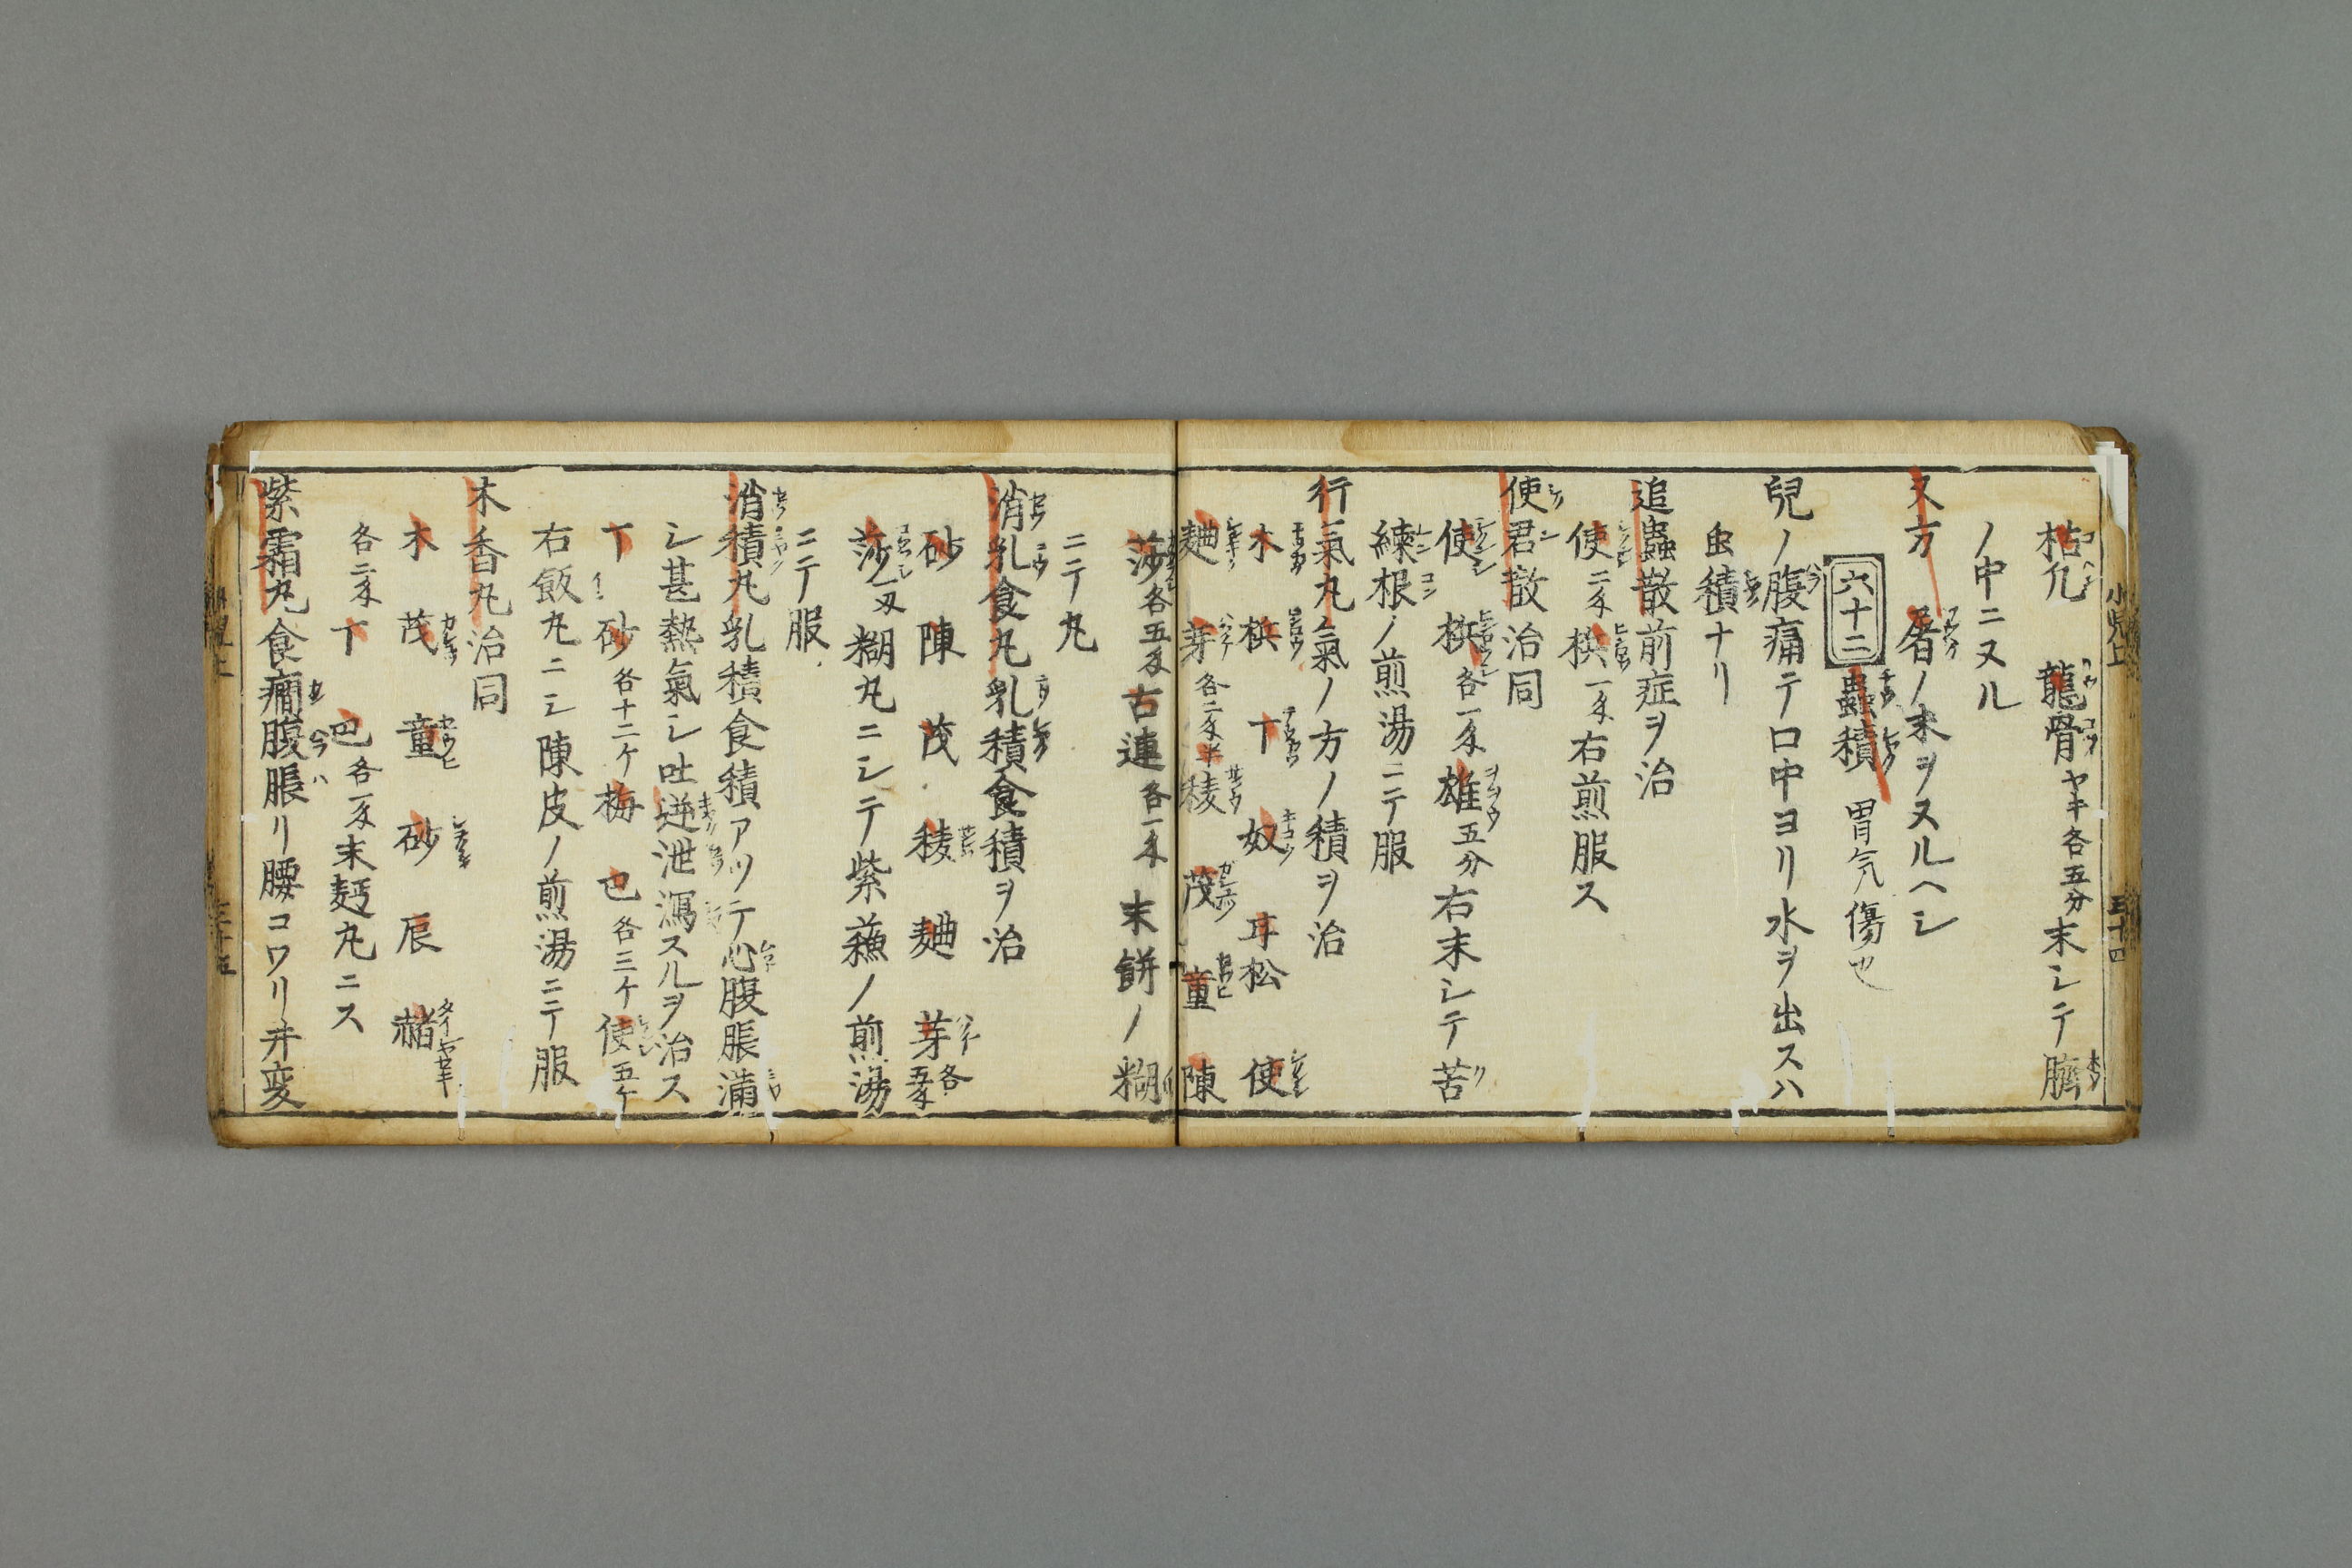 枯凢 龍骨ヤキ各五分末シテ臍
ノ中ニヌル
又方 屠ノ末ヲヌルヘシ
六十二 蟲積 胃気傷也
兒ノ腹痛テ口中ヨリ水ヲ出スハ
虫積ナリ
追蟲散前症ヲ治
使二匁梹一匁右煎服ス
使君散治同
使 梹各一匁雄五分右末シテ苦
練根ノ煎湯ニテ服
行氣丸氣ノ方ノ積ヲ治
木 梹 丁 奴 耳松 使
麯 芽各二匁半稜 茂 童 陳
莎各五匁古連各一匁 末餅ノ糊
ニテ丸
消乳食丸乳積食積ヲ治
砂 陳 茂 稜 麯 芽各五匁
莎一匁糊丸ニシテ紫蘓ノ煎湯
ニテ服
消積丸乳積食積アツテ心腹脹満
シ甚熱氣シ吐逆泄瀉スルヲ治ス
丁 砂各十二ケ梅 巴各三ケ使五ケ
右飯丸ニシ陳皮ノ煎湯ニテ服
木香丸治同
木 茂 童 砂 辰 赭
各二匁丁 巴各一匁末麪丸ニス
紫霜丸食癇腹脹リ腰コワリ并変
小児上
三十四